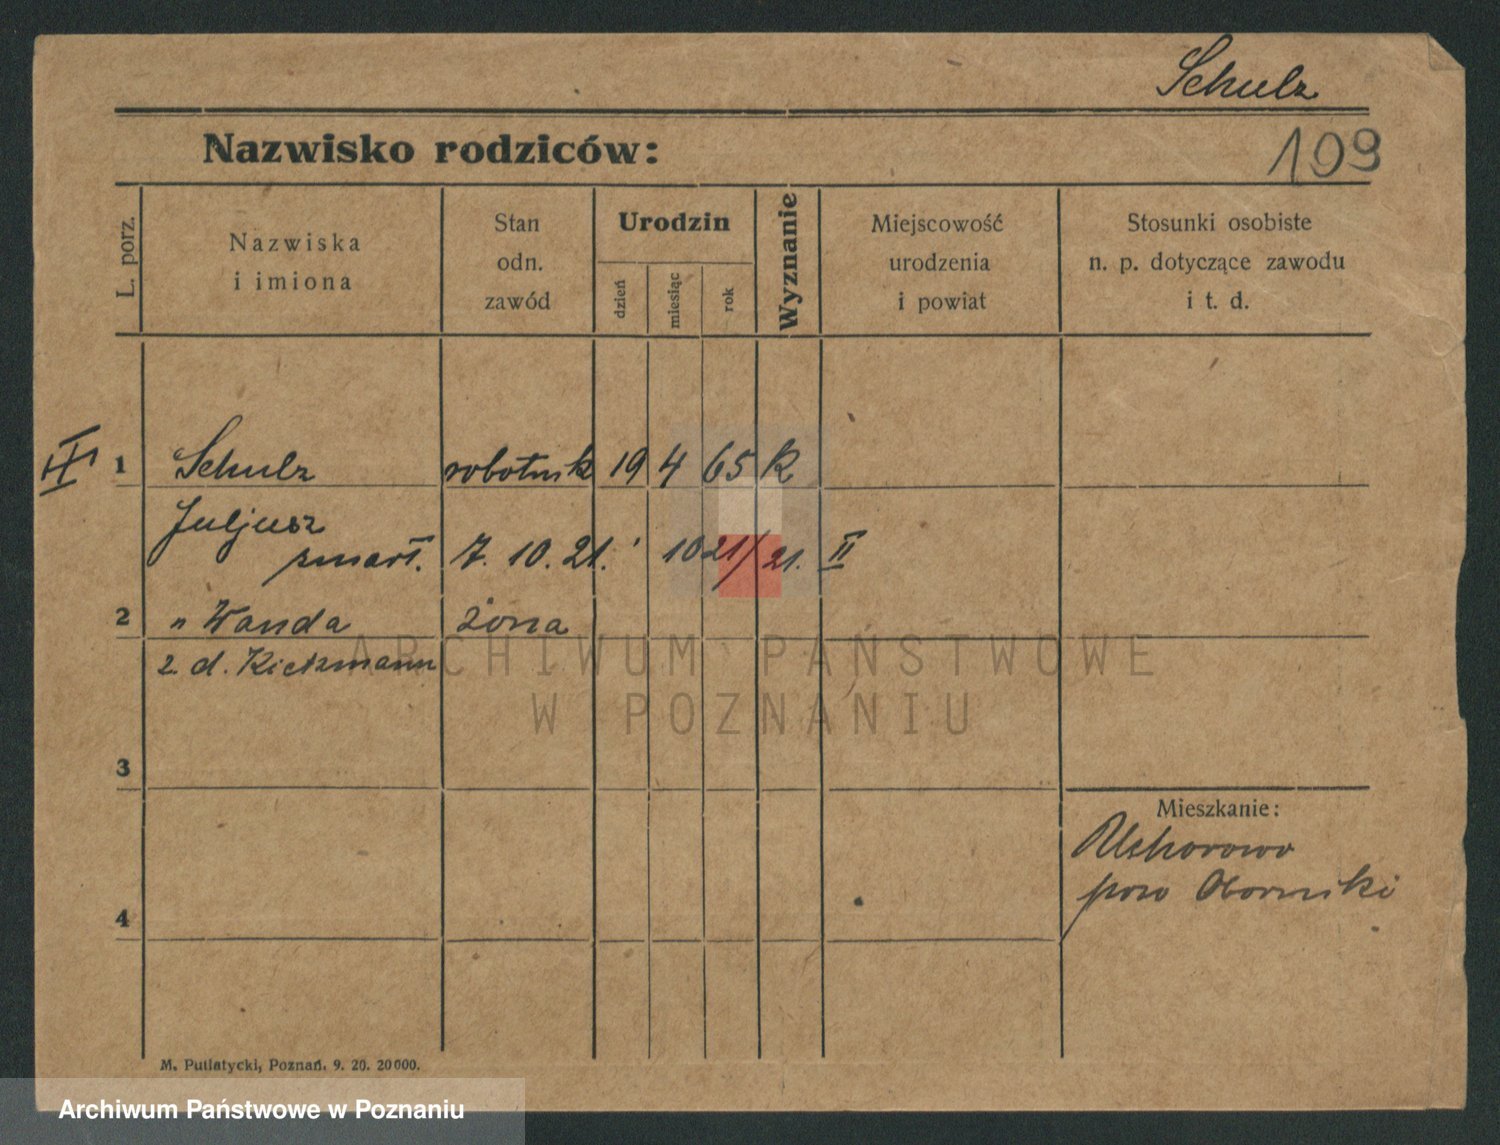 Schulz
Nazwisko rodziców:
109
L. porz.
Nazwiska
i imiona
Stan
odn.
zawód
Urodzin
dzień
miesiąc
rok
Wyznanie
Miejscowość
urodzenia
i powiat
Stosunki osobiste
n. p. dotyczące zawodu
i t. d.
1 Schulz robotnik 19 4 65 K
Juljusz
zmarł. 7. 10. 21. 10 21/21. II
2 " Wanda żona
z. d. Kickmann
ARCHIWUM PAŃSTWOWE
W POZNANIU
3
Mieszkanie:
Uchorowo
pow Oborniki
4
M. Putiatycki, Poznań. 9. 20. 20000.
Archiwum Państwowe w Poznaniu